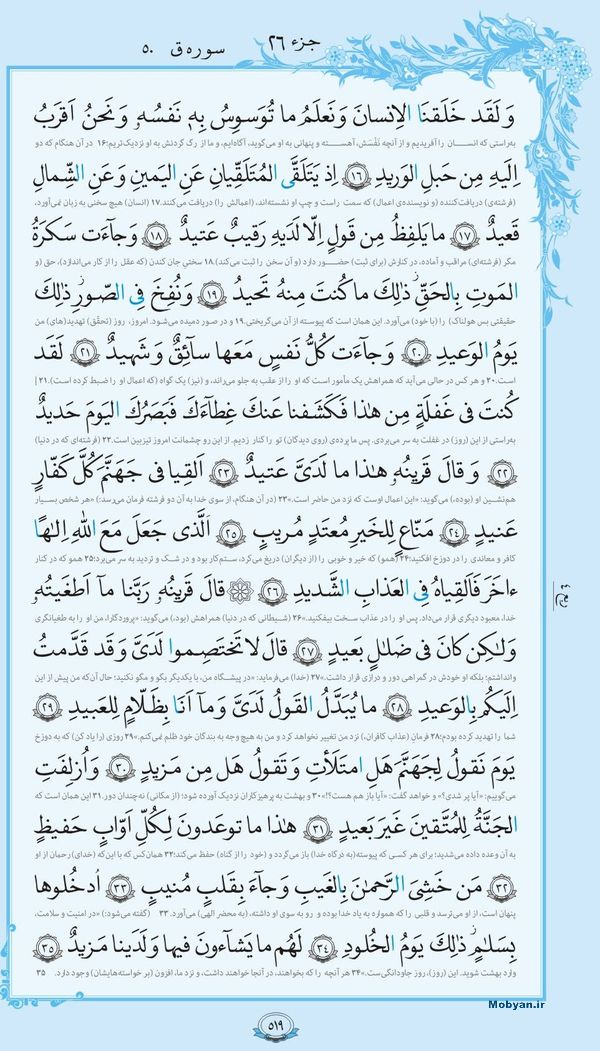 جزء ۲۶
سوره ق ۵۰
وَ لَقَد خَلَقنَا الاِنسانَ وَ نَعلَمُ ما تُوَسوِسُ بِهٖ نَفسُهٗ وَ نَحنُ اَقرَبُ
به‌راستی که انسان را آفریدیم و از آنچه نَفْسَش، آهسته و پنهانی به او می‌گوید، آگاه‌ایم، و ما از رگ گردنش به او نزدیک‌تریم؛۱۶ در آن هنگام که دو
اِلَیهِ مِن حَبلِ الوَریدِ ۱۶ اِذ یَتَلَقَّی المُتَلَقِّیانِ عَنِ الیَمینِ وَ عَنِ الشِّمالِ
(فرشته‌ی) دریافت‌کننده (و نویسنده‌ی اعمال) که سمت راست و چپ او نشسته‌اند، (اعمالش را) دریافت می‌کنند.۱۷ (انسان) هیچ سخنی به زبان نمی‌آورد،
قَعیدٌ ۱۷ ما یَلفِظُ مِن قَولٍ اِلّا لَدَیهِ رَقیبٌ عَتیدٌ ۱۸ وَ جاۤءَت سَکرَةُ
مگر (فرشته‌ای) مراقب و آماده، در کنارش (برای ثبت) حضور دارد (و آن سخن را ثبت می‌کند).۱۸ سختیِ جان کندن (که عقل را از کار می‌اندازد)، حق (و
المَوتِ بِالحَقِّ ذٰلِكَ ما کُنتَ مِنهُ تَحیدُ ۱۹ وَ نُفِخَ فِی الصّورِ ذٰلِكَ
حقیقتی بس هولناک) را (با خود) می‌آورد. این همان است که پیوسته از آن می‌گریختی.۱۹ و در صور دمیده می‌شود. امروز، روز (تحقّق) تهدید(های) من
یَومُ الوَعیدِ ۲۰ وَ جاۤءَت کُلُّ نَفسٍ مَعَها ساۤئِقٌ وَ شَهیدٌ ۲۱ لَقَد
است.۲۰ و هر کس در حالی می‌آید که همراهش یک مأمور است که او را از عقب به جلو می‌راند، و (نیز) یک گواه (که اعمال او را ضبط کرده است).۲۱
کُنتَ فی غَفلَةٍ مِن هٰذا فَکَشَفنا عَنكَ غِطاۤءَكَ فَبَصَرُكَ الیَومَ حَدیدٌ
به‌راستی از این (روز) در غفلت به سر می‌بردی. پس ما پرده‌ی (روی دیدگان) تو را کنار زدیم. از این رو چشمانت امروز تیزبین است.۲۲ (فرشته‌ای که در دنیا)
۲۲ وَ قالَ قَرینُهٗ هٰذا ما لَدَیَّ عَتیدٌ ۲۳ اَلقِیا فی جَهَنَّمَ کُلَّ کَفّارٍ
هم‌نشین او (بوده)، می‌گوید: «این اعمال اوست که نزد من حاضر است.»۲۳ (در آن هنگام، از سوی خدا به آن دو فرشته فرمان می‌رسد:) «هر شخص بسیار
عَنیدٍ ۲۴ مَنّاعٍ لِلخَیرِ مُعتَدٍ مُریبٍ ۲۵ اَلَّذی جَعَلَ مَعَ اللهِ اِلٰهًا
کافر و معاندی را در دوزخ افکنید؛۲۴ (همو) که خیر و خوبی را (از دیگران) دریغ می‌کرد، و ستم‌کار بود و در شک و تردید به سر می‌برد؛۲۵ همو که در کنار
ءاخَرَ فَاَلقِیاهُ فِی العَذابِ الشَّدیدِ ۲۶ قالَ قَرینُهٗ رَبَّنا ماۤ اَطغَیتُهٗ
خدا، معبود دیگری قرار می‌داد. پس او را در عذاب سخت بیفکنید.»۲۶ (شیطانی که در دنیا) همراهش (بود)، می‌گوید: «پروردگارا، من او را به طغیانگری
وَلٰکِن کانَ فی ضَلالٍ بَعیدٍ ۲۷ قالَ لا تَختَصِموا لَدَیَّ وَ قَد قَدَّمتُ
وانداشتم؛ بلکه او خودش در گمراهی دور و درازی قرار داشت.»۲۷ (خدا) می‌فرماید: «در پیشگاه من، با یکدیگر بگو و مگو نکنید؛ حال آن‌که من پیش از این
اِلَیکُم بِالوَعیدِ ۲۸ ما یُبَدَّلُ القَولُ لَدَیَّ وَ ماۤ اَنَا بِظَلّامٍ لِلعَبیدِ ۲۹
شما را تهدید کرده بودم؛۲۸ فرمان (عذاب کافران)، نزد من تغییر نخواهد کرد و من به هیچ وجه به بندگان خود ظلم نمی‌کنم.»۲۹ روزی (را یاد کن) که به دوزخ
یَومَ نَقولُ لِجَهَنَّمَ هَلِ امتَلَأتِ وَ تَقولُ هَل مِن مَزیدٍ ۳۰ وَ اُزلِفَتِ
می‌گوییم: «آیا پر شدی؟» و خواهد گفت: «آیا باز هم هست؟!»۳۰ و بهشت به پرهیزکاران نزدیک آورده شود؛ (از مکانی) نه‌چندان دور.۳۱ این همان است که
الجَنَّةُ لِلمُتَّقینَ غَیرَ بَعیدٍ ۳۱ هٰذا ما توعَدونَ لِکُلِّ اَوّابٍ حَفیظٍ
به آن وعده داده می‌شدید؛ برای هر کسی که پیوسته (به درگاه خدا) باز می‌گردد و (خود را از گناه) حفظ می‌کند؛۳۲ همان‌کس که با این‌که (خدای) رحمان از او
۳۲ مَن خَشِیَ الرَّحمٰنَ بِالغَیبِ وَ جاۤءَ بِقَلبٍ مُنیبٍ ۳۳ اُدخُلوها
پنهان است، از او می‌ترسد و قلبی را که همواره به یاد خدا بوده و رو به سوی او داشته، (به محضر الهی) می‌آورد. ۳۳ (گفته می‌شود:) «در امنیت و سلامت،
بِسَلامٍ ذٰلِكَ یَومُ الخُلودِ ۳۴ لَهُم ما یَشاۤءونَ فیها وَ لَدَینا مَزیدٌ ۳۵
وارد بهشت شوید. این (روز)، روز جاودانگی‌ست.»۳۴ هر آنچه را که بخواهند، در آنجا خواهند داشت، و نزد ما، افزون (بر خواسته‌هایشان) وجود دارد. ۳۵
Mobyan.ir
۵۱۹